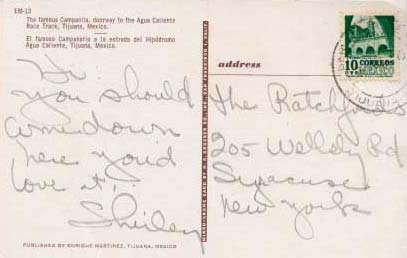 EM-13
The famous Campanile, doorway to the Agua Caliente
Race Track, Tijuana, Mexico.
El famoso Campanario a la entrada del Hipódromo
Agua Caliente, Tijuana, Mexico.
Hi
you should
come down
here you'd
love it!
Shirley
PUBLISHED BY ENRIQUE MARTINEZ, TIJUANA, MEXICO
address
10 CORREOS
MEXICO
The Ratchfords
205 Wellesly Rd
Syracuse
New York